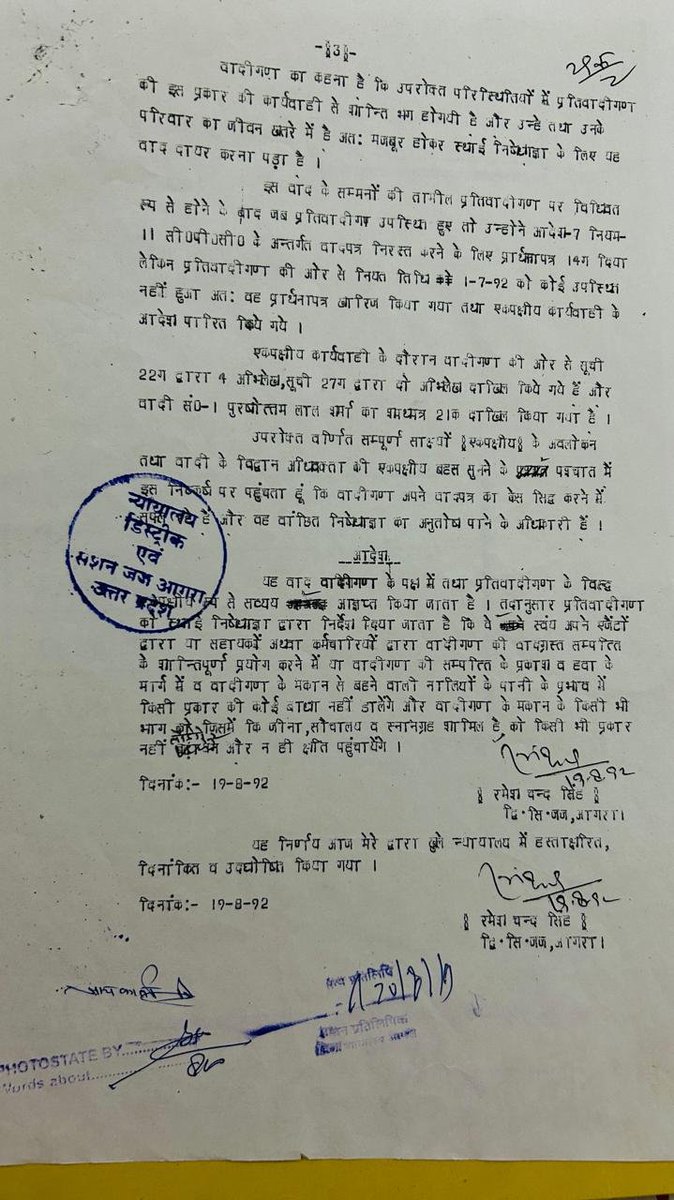 -§3§-
वादीगण का कहना है कि उपरोक्त परिस्थितियों में प्रतिवादीगण
की इस प्रकार की कार्यवाही से शान्ति भंग होगयी है और उन्हे तथा उनके
परिवार का जीवन खतरे में है अत: मजबूर होकर स्थाई निषेधाज्ञा के लिए यह
वाद दायर करना पड़ा है ।
इस वाद के सम्मनों की तामील प्रतिवादीगण पर विधिवत
रूप से होने के बाद जब प्रतिवादीगण उपस्थित हुए तो उन्होने आदेश-7 नियम-
11 सी0पी0सी0 के अन्तर्गत वादपत्र निरस्त करने के लिए प्रार्थनापत्र 14ग दिया
लेकिन प्रतिवादीगण की ओर से नियत तिथि 1-7-92 को कोई उपस्थित
नहीं हुआ अत: वह प्रार्थनापत्र खारिज किया गया तथा एकपक्षीय कार्यवाही के
आदेश पारित किये गये ।
एकपक्षीय कार्यवाही के दौरान वादीगण की ओर से सूची
22ग द्वारा 4 अभिलेख,सूची 27ग द्वारा दो अभिलेख दाखिल किये गये हैं और
वादी सं0-1 पुरषोत्तम लाल शर्मा का शपथपत्र 21क दाखिल किया गया है ।
उपरोक्त वर्णित सम्पूर्ण साक्ष्यों §एकपक्षीय§ के अवलोकन
तथा वादी के विद्वान अधिवक्ता की एकपक्षीय बहस सुनने के पश्चात में
इस निष्कर्ष पर पहुंचता हूं कि वादीगण अपने वादपत्र का केस सिद्ध करने में
सफल हैं और वह वांछित निषेधाज्ञा का अनुतोष पाने के अधिकारी हैं ।
न्यायालय
डिस्ट्रीक
एवं
सेशन जज आगरा
उत्तर प्रदेश
आदेश
यह वाद वादीगण के पक्ष में तथा प्रतिवादीगण के विरूद्ध
एकपक्षीय रूप से सव्यय आज्ञप्त किया जाता है । तदानुसार प्रतिवादीगण
को स्थाई निषेधाज्ञा द्वारा निर्देश दिया जाता है कि वे स्वंय अपने एजेंटों
द्वारा या सहायकों अथवा कर्मचारियों द्वारा वादीगण की वादग्रस्त सम्पत्ति
के शान्तिपूर्ण प्रयोग करने में या वादीगण की सम्पत्ति के प्रकाश व हवा के
मार्ग में व वादीगण के मकान से बहने वाली नालियों के पानी के प्रभाव में
किसी प्रकार की कोई बाधा नहीं डालेंगे और वादीगण के मकान के किसी भी
भाग जिसमें कि जीना,सौचालय व स्नानग्रह शामिल है को किसी भी प्रकार
नहीं और न ही क्षति पहुंचायेंगे ।
दिनांक:- 19-8-92
19-8-92
§ रमेश चन्द सिंह §
द्वि.सि.जज,आगरा।
यह निर्णय आज मेरे द्वारा खुले न्यायालय में हस्ताक्षरित,
दिनांकित व उदघोषित किया गया ।
दिनांक:- 19-8-92
§ रमेश चन्द सिंह §
द्वि.सि.जज,आगरा।
PHOTOSTATE BY
Words about